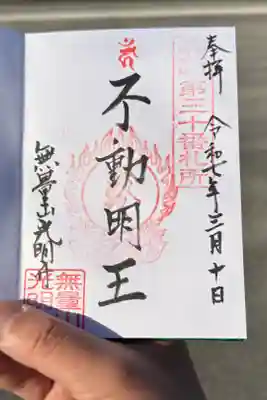 奉拝
令和七年三月十日
第三十番札所
不動明王
無量山光明寺
無量山
光明